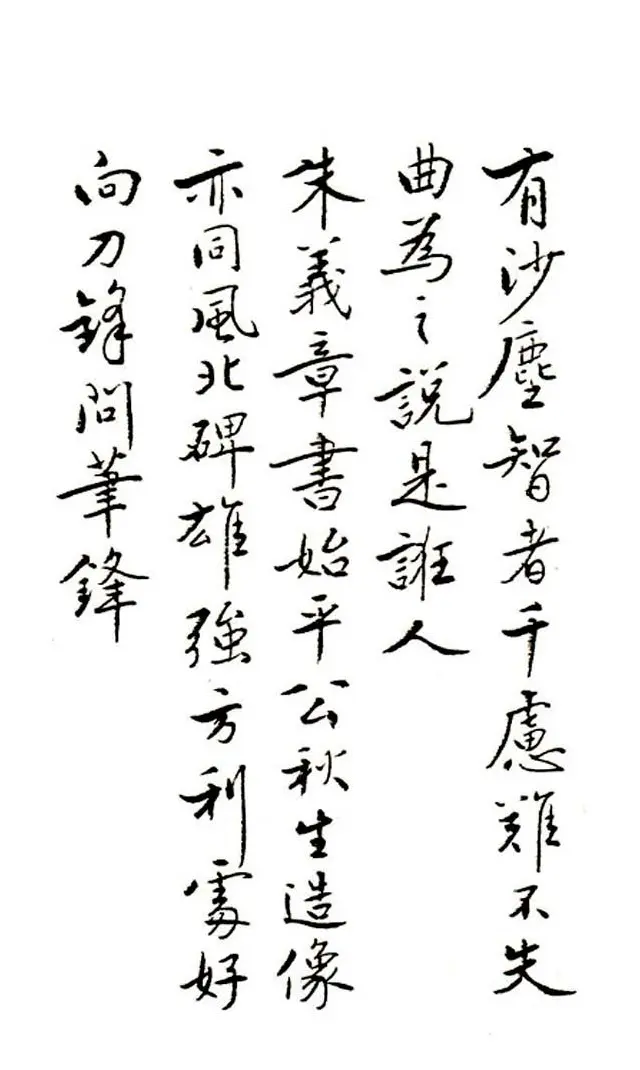 有沙塵智者千慮難不失
曲為之說是誑人
朱義章書始平公秋生造像
亦同風北碑雄強方利處好
向刀鋒問筆鋒